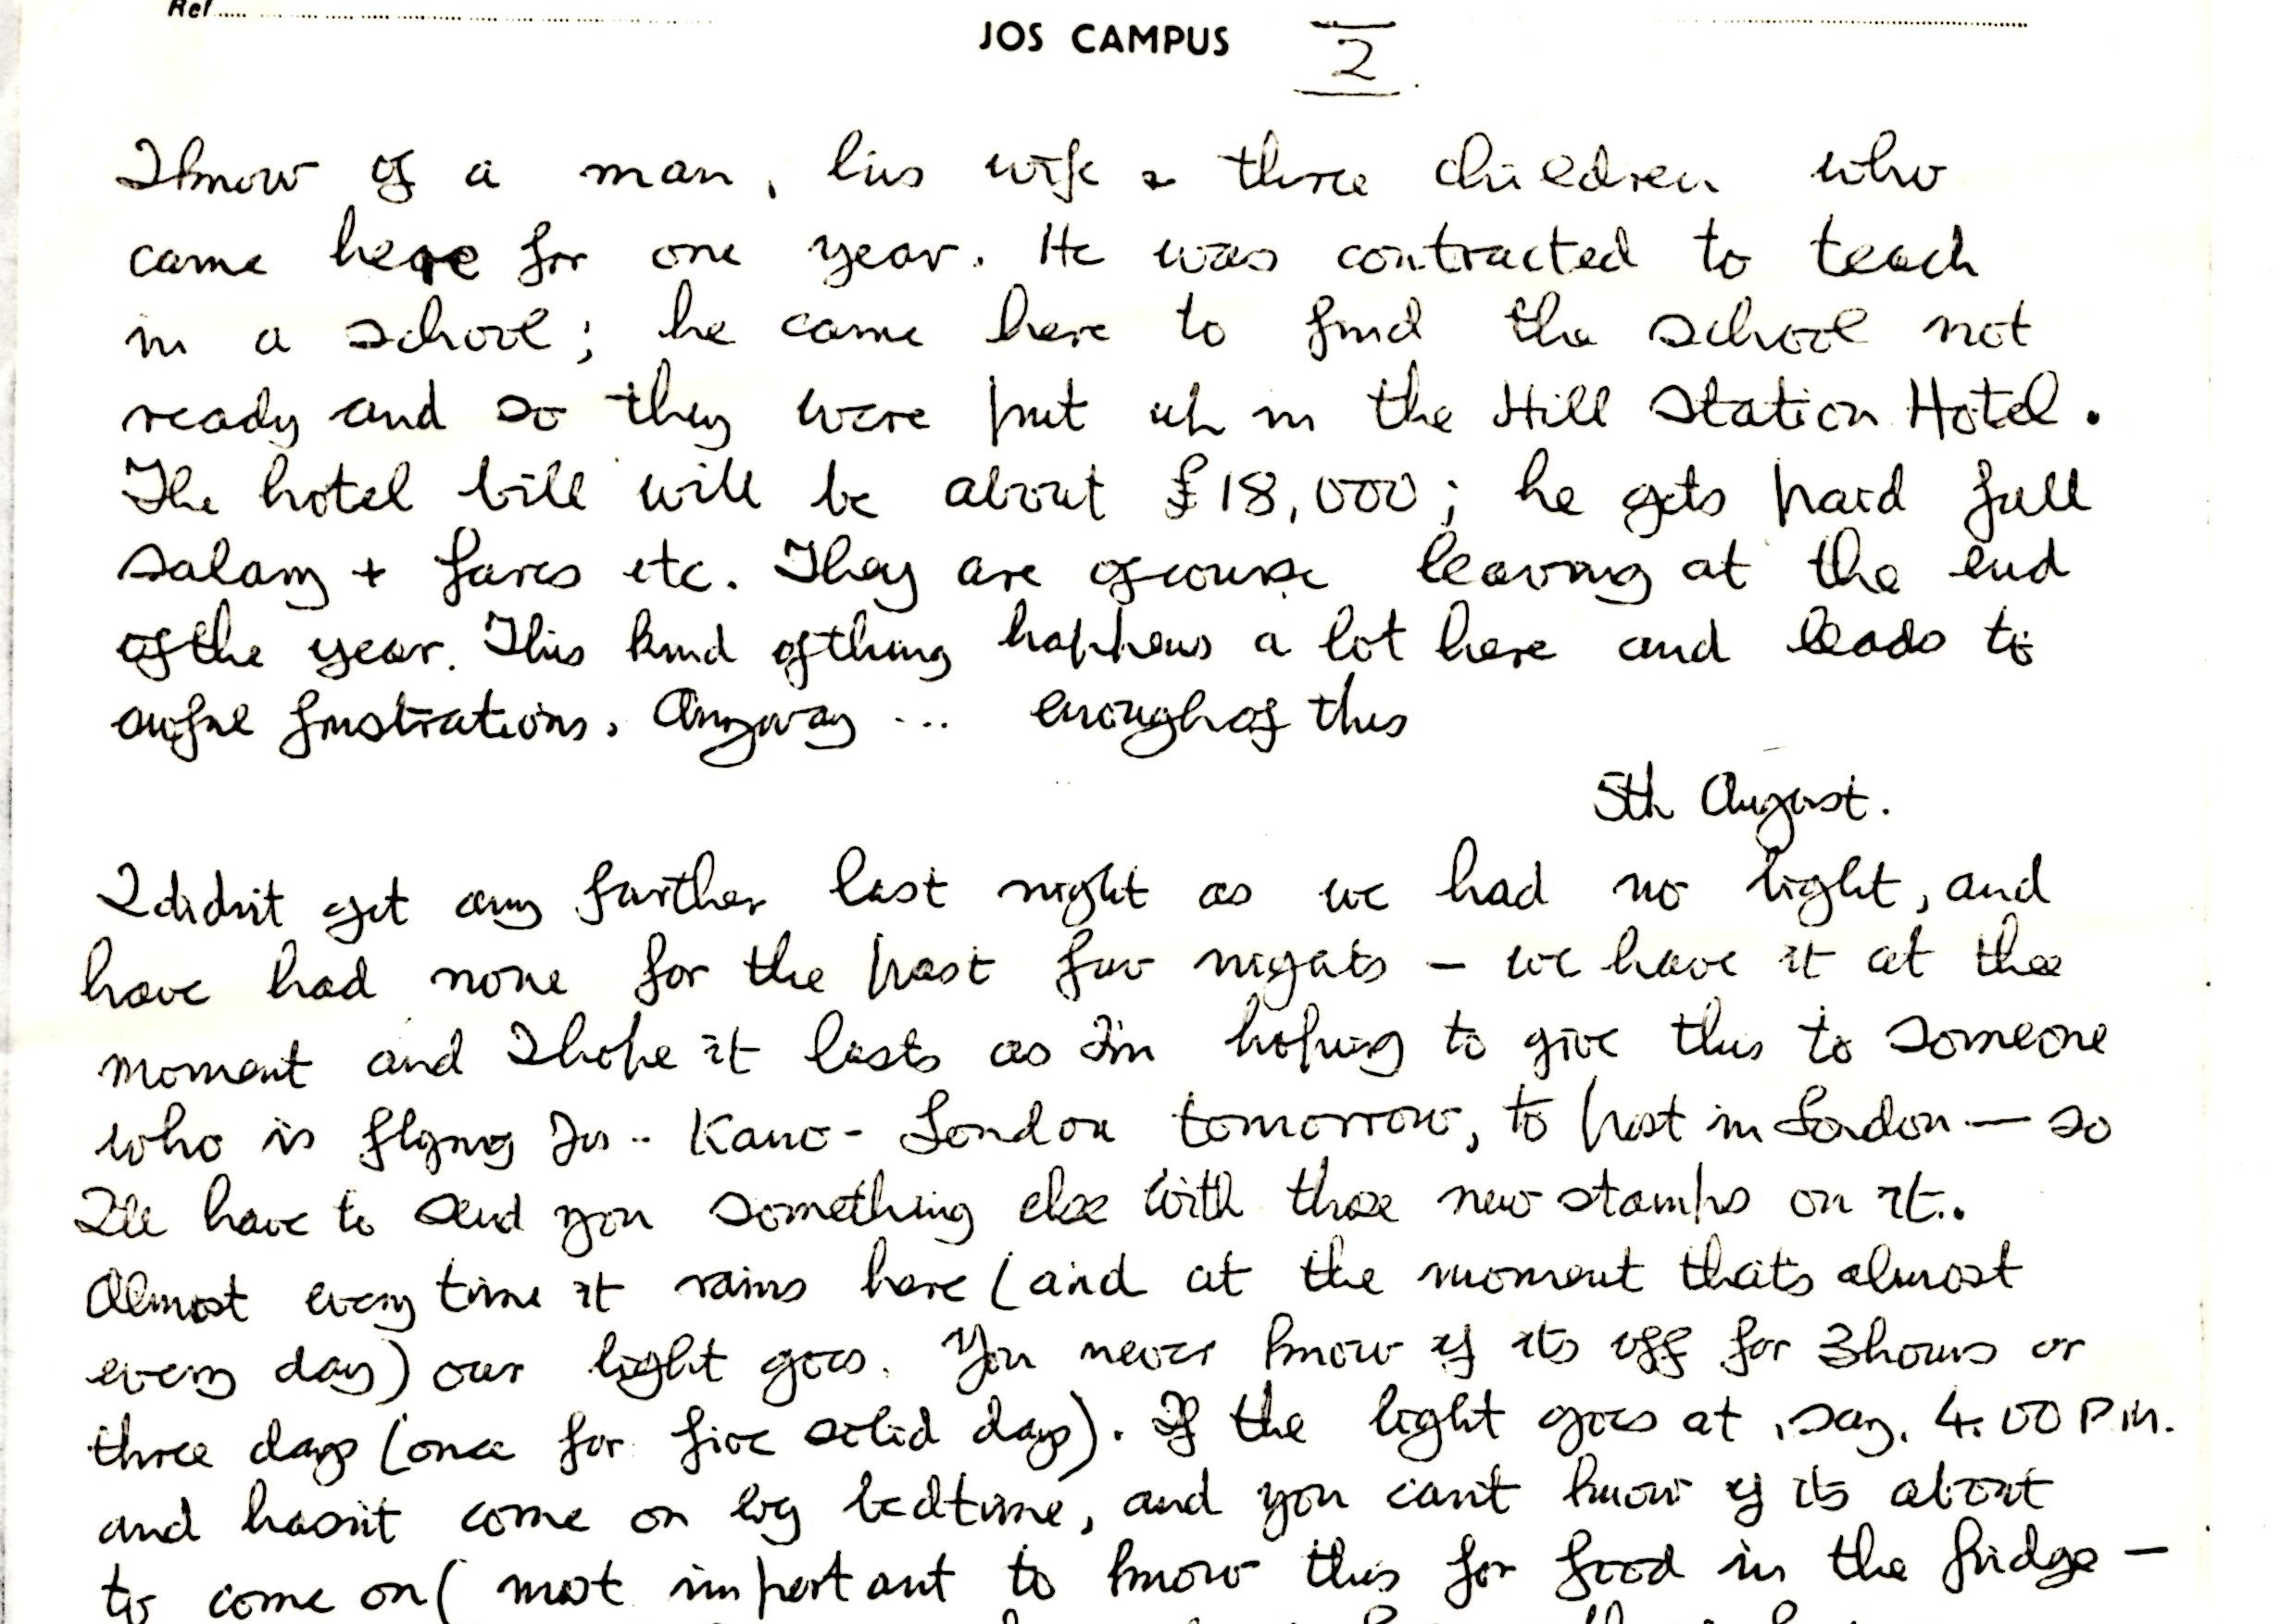 Ref
JOS CAMPUS 2
I know of a man, his wife & three children who
came here for one year. He was contracted to teach
in a school; he came here to find the school not
ready and so they were put up in the Hill Station Hotel.
The hotel bill will be about £18,000; he gets paid full
salary + fares etc. They are ofcourse leaving at the end
of the year. This kind of thing happens a lot here and leads to
awful frustrations. Anyway ... enough of this
5th August.
I didn't get any further last night as we had no light, and
have had none for the past few nights – we have it at the
moment and I hope it lasts as I'm hoping to give this to someone
who is flying Jos - Kano - London tomorrow, to post in London — so
I'll have to send you something else with those new stamps on it..
Almost every time it rains here (and at the moment thats almost
every day) our light goes. You never know if its off for 3 hours or
three days (once for five solid days). If the light goes at, say, 4.00 P.M.
and hasn't come on by bedtime, and you can't know if its about
to come on ( most important to know this for food in the fridge –